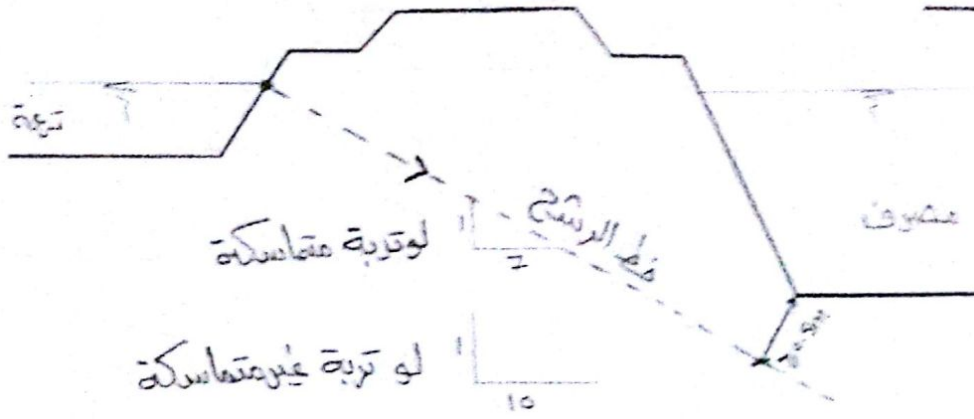 ترعة
مصرف
خط الرشح
لو تربة متماسكة
1
7
لو تربة غير متماسكة
1
10